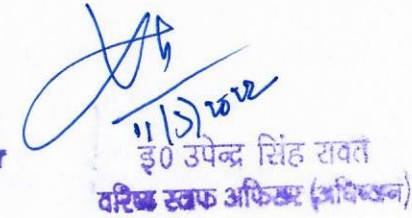 11/3/2022
इ० उपेन्द्र सिंह रावत
वरिष्ठ स्टाफ अफिसर (अधिष्ठान)